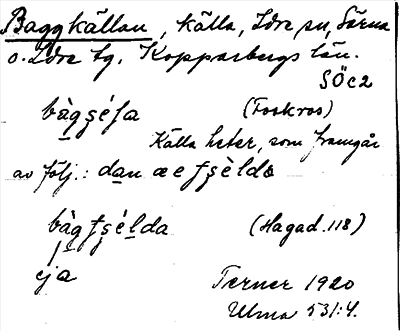 Baggkällan, källa, Idre sn, Särna
o. Idre tg. Kopparbergs län.
SÖC2
(Foskros)
Källa heter, som framgår
av följ.: dan æ e
(Hagad. 118)
eja
Terner 1920
Ulma 531:4.